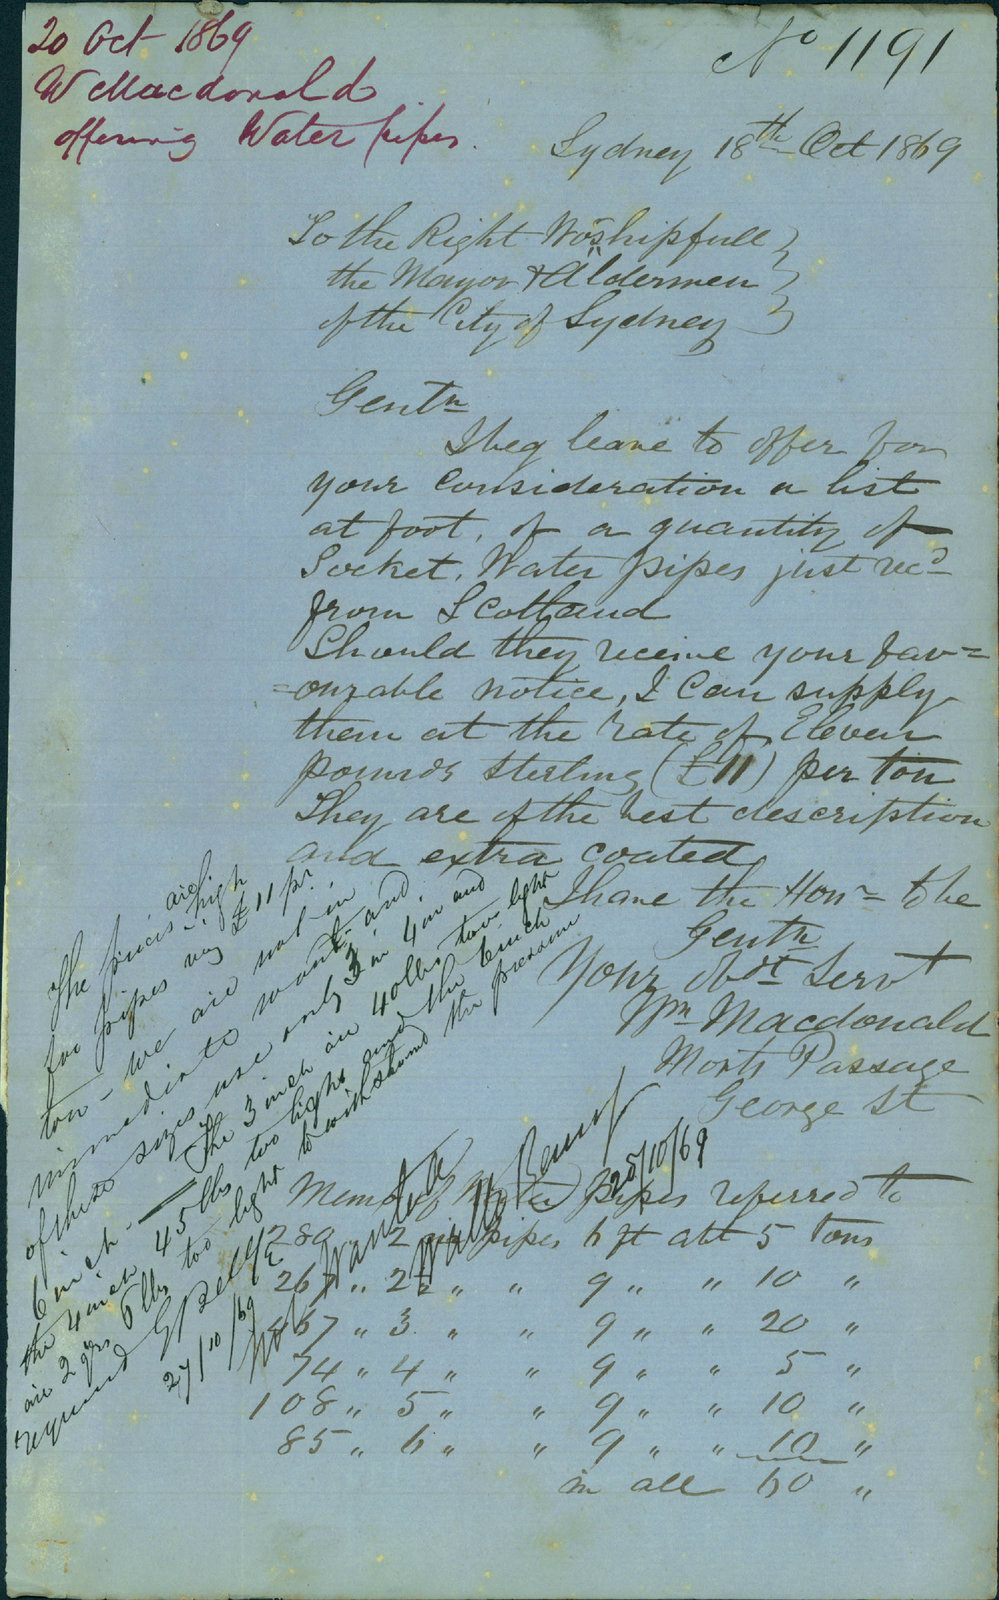 20 Oct 1869
W Macdonald
offering Water pipes.
No 1191
Sydney 18th Oct 1869
To the Right Worshipfull
the Mayor & Aldermen
of the City of Sydney
Gentn
I beg leave to offer for
your Consideration a list
at foot, of a quantity of
Socket, Water pipes just recd
from Scotland
Should they receive your fav=
=ourable notice, I Can supply
them at the rate of Eleven
pounds sterling (£11) per ton
They are of the best description
and extra coated
I have the Honr to be
Gentn
Your Obdt Servt
Wm Macdonald
Morts Passage
George St
Memo of Water Pipes referred to
289 2 in pipes 6 ft abt 5 Tons
267 " 2½ " " 9 " " 10 "
467 " 3 " " 9 " " 20 "
74 " 4 " " 9 " " 5 "
108 " 5 " " 9 " " 10 "
85 " 6 " " 9 " " 10 "
in all 60 "
The prices are high
for pipes viz £11 pr
ton - we are not in
immediate want and
of these sizes use only 3 in 4 in and
6 inch - The 3 inch are 40 lbs too light
the 4 inch 45 lbs too light and the 6 inch
are 2 qrs 6 lbs too light to withstand the pressure
required
27/10/69
Not Wanted
25/10/69